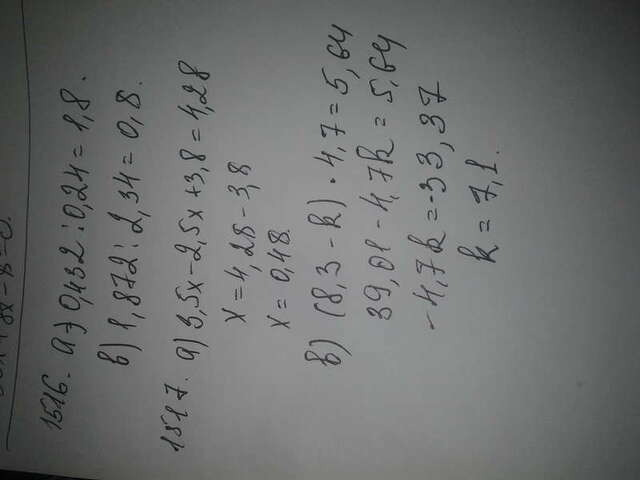 1516. а) 0,432 : 0,24 = 1,8.
в) 1,872 : 2,34 = 0,8.
1517. а) 3,5x - 2,5x + 3,8 = 4,28
x = 4,28 - 3,8
x = 0,48.
в) (8,3 - k) · 4,7 = 5,64
39,01 - 4,7k = 5,64
-4,7k = -33,37
k = 7,1.